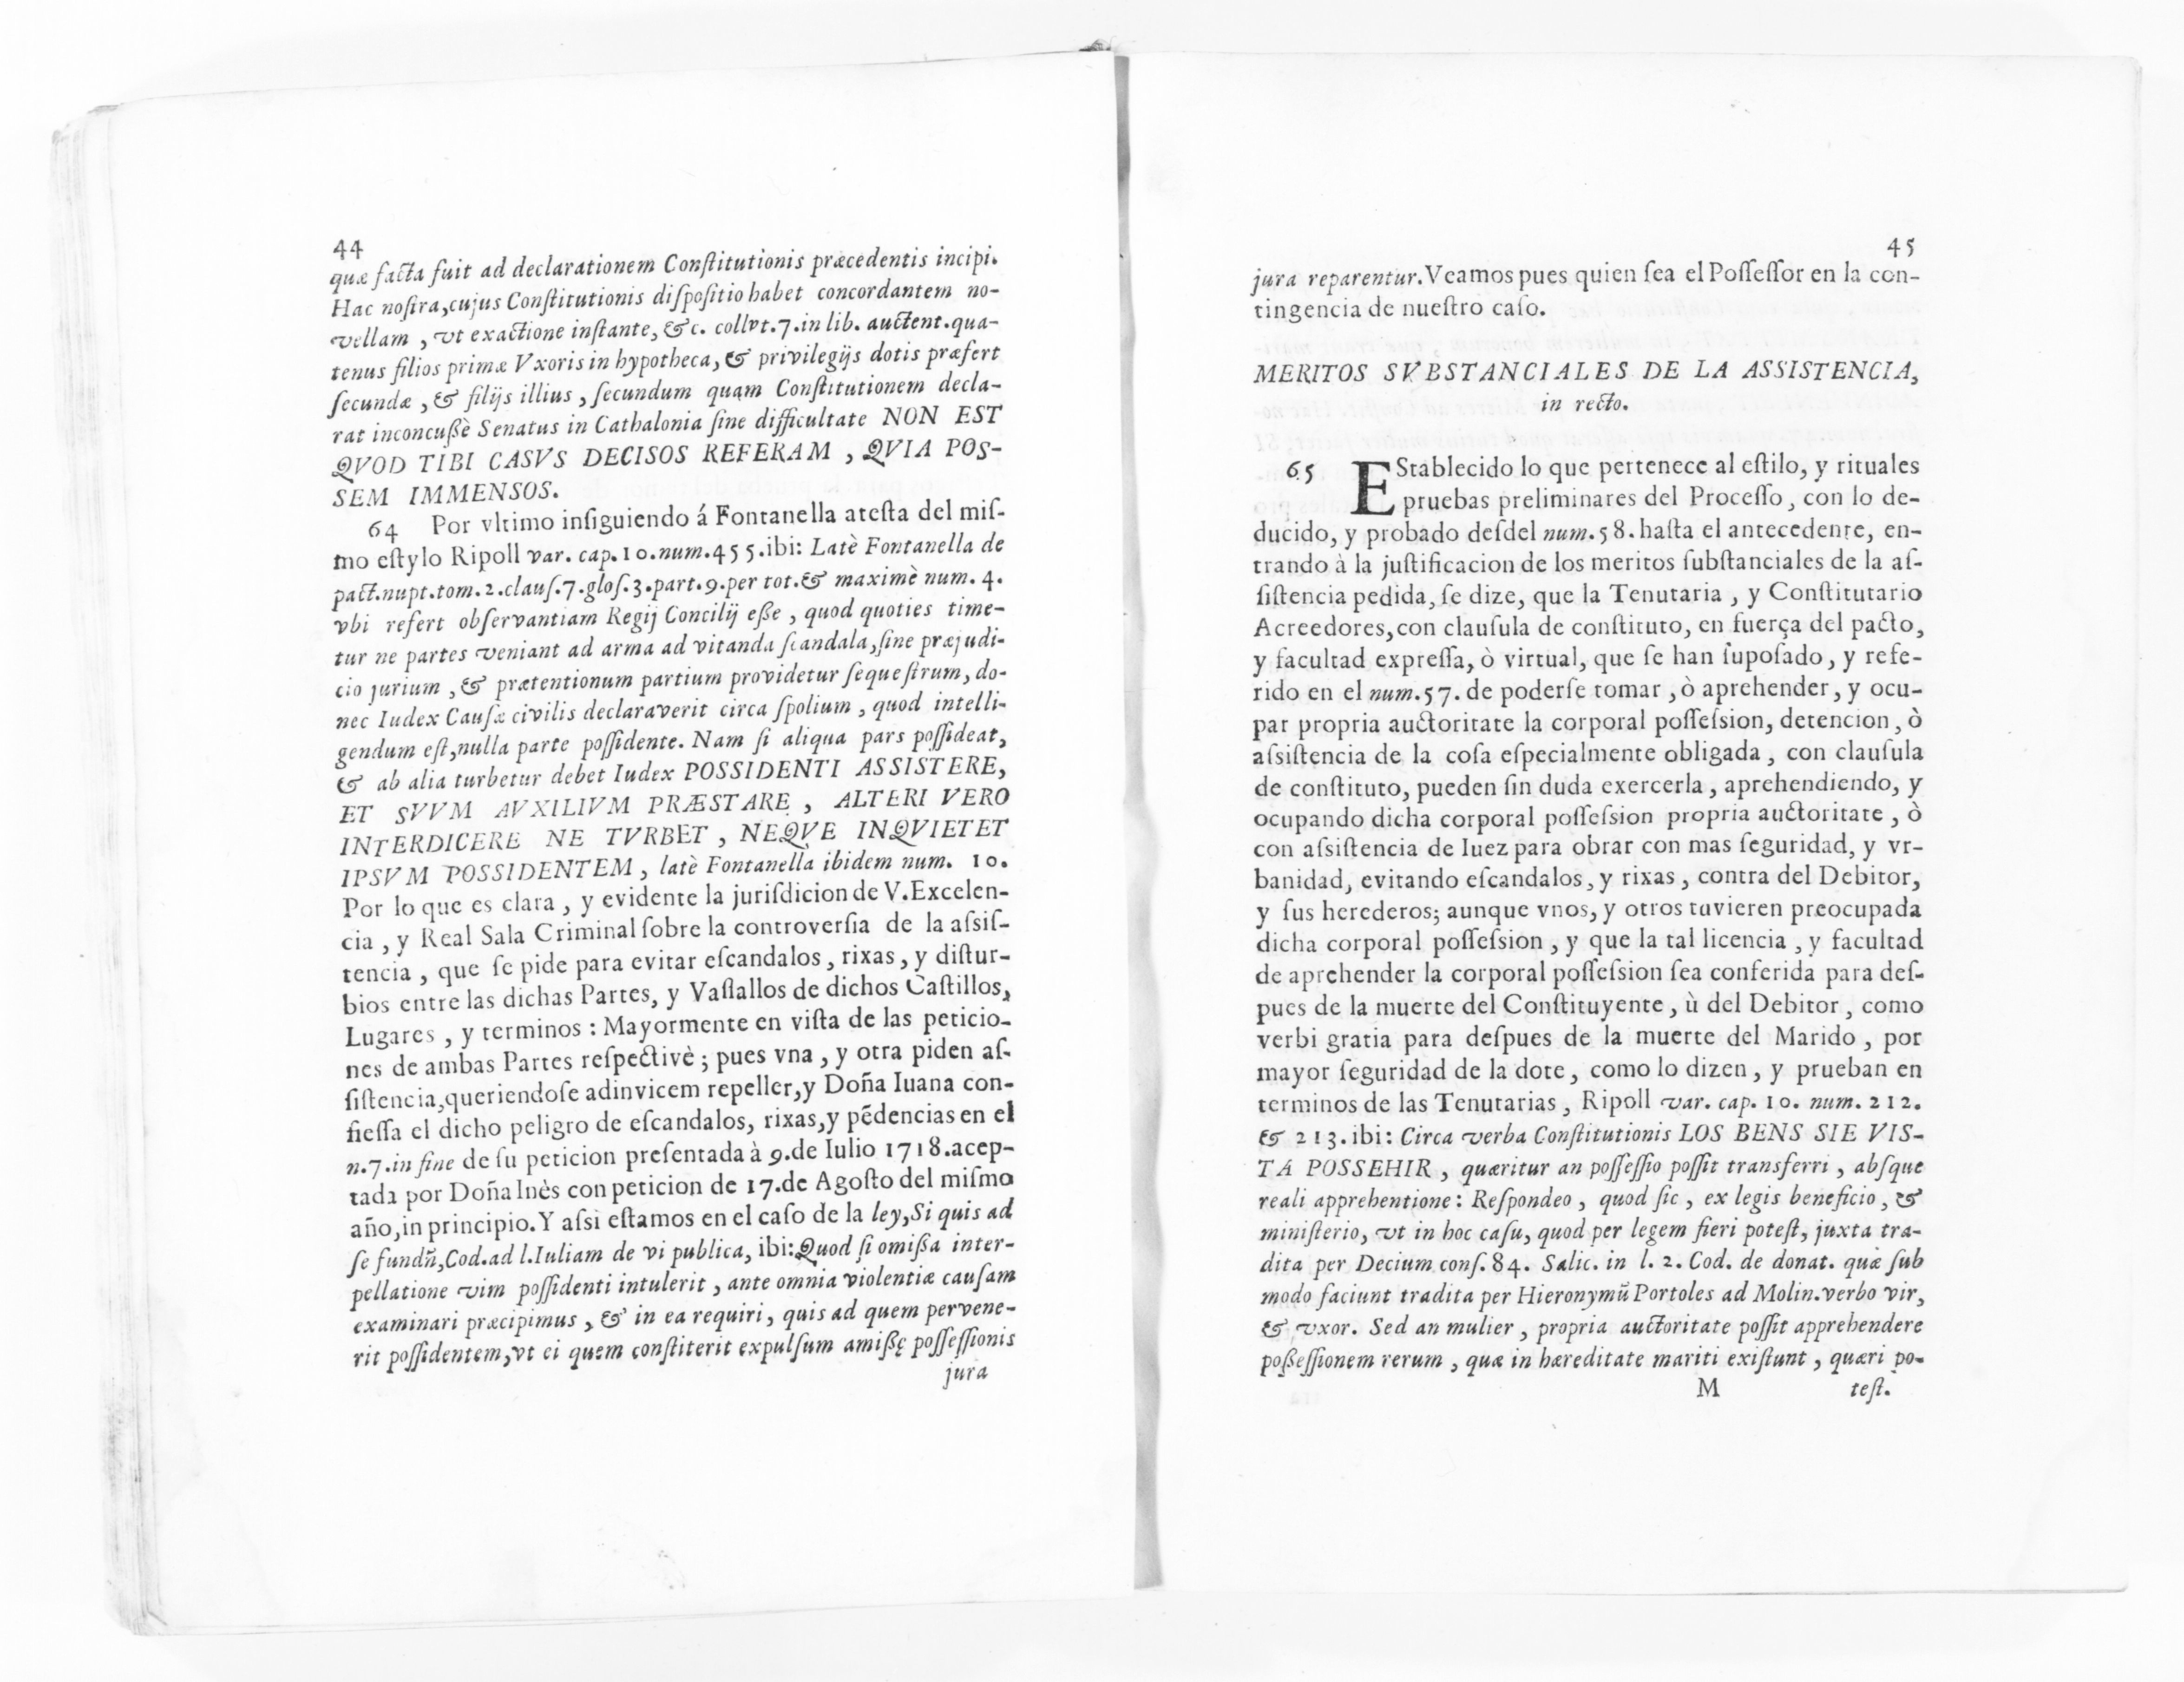 44
quæ facta fuit ad declarationem Conſtitutionis præcedentis incipi.
Hac noſtra,cujus Conſtitutionis diſpoſitio habet concordantem no-
vellam , vt exactione inſtante, &c. collvt.7.in lib. auctent.qua-
tenus filios primæ Vxoris in hypotheca, & privilegijs dotis præfert
ſecundæ , & filijs illius , ſecundum quam Conſtitutionem decla-
rat inconcußè Senatus in Cathalonia ſine difficultate NON EST
QVOD TIBI CASVS DECISOS REFERAM , QVIA POS-
SEM IMMENSOS.
64 Por vltimo inſiguiendo á Fontanella ateſta del miſ-
mo eſtylo Ripoll var. cap.10.num.455.ibi: Latè Fontanella de
pact.nupt.tom.2.clauſ.7.gloſ.3.part.9.per tot.& maximè num. 4.
vbi refert obſervantiam Regij Concilij eße , quod quoties time-
tur ne partes veniant ad arma ad vitanda ſcandala,ſine præjudi-
cio jurium , & prætentionum partium providetur ſequeſtrum, do-
nec Iudex Cauſæ civilis declaraverit circa ſpolium , quod intelli-
gendum eſt,nulla parte poſſidente. Nam ſi aliqua pars poſſideat,
& ab alia turbetur debet Iudex POSSIDENTI ASSISTERE,
ET SVVM AVXILIVM PRÆSTARE , ALTERI VERO
INTERDICERE NE TVRBET , NEQVE INQVIETET
IPSVM POSSIDENTEM , latè Fontanella ibidem num. 10.
Por lo que es clara , y evidente la juriſdicion de V.Excelen-
cia , y Real Sala Criminal ſobre la controverſia de la aſsiſ-
tencia , que ſe pide para evitar eſcandalos , rixas , y diſtur-
bios entre las dichas Partes, y Vaſſallos de dichos Caſtillos,
Lugares , y terminos : Mayormente en viſta de las peticio-
nes de ambas Partes reſpectivè ; pues vna , y otra piden aſ-
ſiſtencia,queriendoſe adinvicem repeller,y Doña Iuana con-
fieſſa el dicho peligro de eſcandalos, rixas,y pẽdencias en el
n.7.in fine de ſu peticion preſentada à 9.de Iulio 1718.acep-
tada por Doña Inès con peticion de 17.de Agoſto del miſmo
año,in principio.Y aſsi eſtamos en el caſo de la ley,Si quis ad
ſe fundñ,Cod.ad l.Iuliam de vi publica, ibi:Quod ſi omißa inter-
pellatione vim poſſidenti intulerit , ante omnia violentiæ cauſam
examinari præcipimus , & in ea requiri, quis ad quem pervene-
rit poſſidentem,vt ei quem conſtiterit expulſum amißę poſſeſſionis
jura
45
jura reparentur.Veamos pues quien ſea el Poſſeſſor en la con-
tingencia de nueſtro caſo.
MERITOS SVBSTANCIALES DE LA ASSISTENCIA,
in recto.
65 EStablecido lo que pertenece al eſtilo, y rituales
pruebas preliminares del Proceſſo , con lo de-
ducido, y probado deſdel num.58.haſta el antecedente, en-
trando à la juſtificacion de los meritos ſubſtanciales de la aſ-
ſiſtencia pedida, ſe dize, que la Tenutaria , y Conſtitutario
Acreedores,con clauſula de conſtituto, en fuerça del pacto,
y facultad expreſſa, ò virtual, que ſe han ſupoſado, y refe-
rido en el num.57. de poderſe tomar , ò aprehender, y ocu-
par propria auctoritate la corporal poſſeſsion, detencion , ò
aſsiſtencia de la coſa eſpecialmente obligada , con clauſula
de conſtituto, pueden ſin duda exercerla , aprehendiendo, y
ocupando dicha corporal poſſeſsion propria auctoritate , ò
con aſsiſtencia de Iuez para obrar con mas ſeguridad, y vr-
banidad, evitando eſcandalos, y rixas , contra del Debitor,
y ſus herederos; aunque vnos, y otros tuvieren preocupada
dicha corporal poſſeſsion , y que la tal licencia , y facultad
de aprehender la corporal poſſeſsion ſea conferida para deſ-
pues de la muerte del Conſtituyente , ù del Debitor , como
verbi gratia para deſpues de la muerte del Marido , por
mayor ſeguridad de la dote , como lo dizen , y prueban en
terminos de las Tenutarias , Ripoll var. cap. 10. num. 212.
& 213.ibi: Circa verba Conſtitutionis LOS BENS SIE VIS-
TA POSSEHIR , quæritur an poſſeſſio poſſit transferri , abſque
reali apprehentione: Reſpondeo , quod ſic , ex legis beneficio , &
miniſterio, vt in hoc caſu, quod per legem fieri poteſt, juxta tra-
dita per Decium conſ.84. Salic. in l. 2. Cod. de donat. quæ ſub
modo faciunt tradita per Hieronymũ Portoles ad Molin.verbo vir,
& vxor. Sed an mulier , propria auctoritate poſſit apprehendere
poßeſſionem rerum , quæ in hæreditate mariti exiſtunt , quæri po-
M teſt.